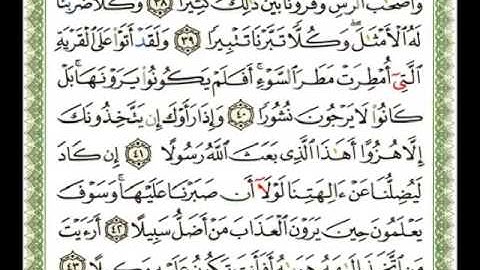 وَأَصْحَٰبَ ٱلرَّسِّ وَقُرُونًۢا بَيْنَ ذَٰلِكَ كَثِيرًا ٣٨ وَكُلًّا ضَرَبْنَا
لَهُ ٱلْأَمْثَٰلَ ۖ وَكُلًّا تَبَّرْنَا تَتْبِيرًا ٣٩ وَلَقَدْ أَتَوْا۟ عَلَى ٱلْقَرْيَةِ
ٱلَّتِىٓ أُمْطِرَتْ مَطَرَ ٱلسَّوْءِ ۚ أَفَلَمْ يَكُونُوا۟ يَرَوْنَهَا ۚ بَلْ
كَانُوا۟ لَا يَرْجُونَ نُشُورًا ٤٠ وَإِذَا رَأَوْكَ إِن يَتَّخِذُونَكَ
إِلَّا هُزُوًا أَهَٰذَا ٱلَّذِى بَعَثَ ٱللَّهُ رَسُولًا ٤١ إِن كَادَ
لَيُضِلُّنَا عَنْ ءَالِهَتِنَا لَوْلَآ أَن صَبَرْنَا عَلَيْهَا ۚ وَسَوْفَ
يَعْلَمُونَ حِينَ يَرَوْنَ ٱلْعَذَابَ مَنْ أَضَلُّ سَبِيلًا ٤٢ أَرَءَيْتَ
مَنِ ٱتَّخَذَ إِلَٰهَهُۥ هَوَىٰهُ أَفَأَنتَ تَكُونُ عَلَيْهِ وَكِيلًا ٤٣